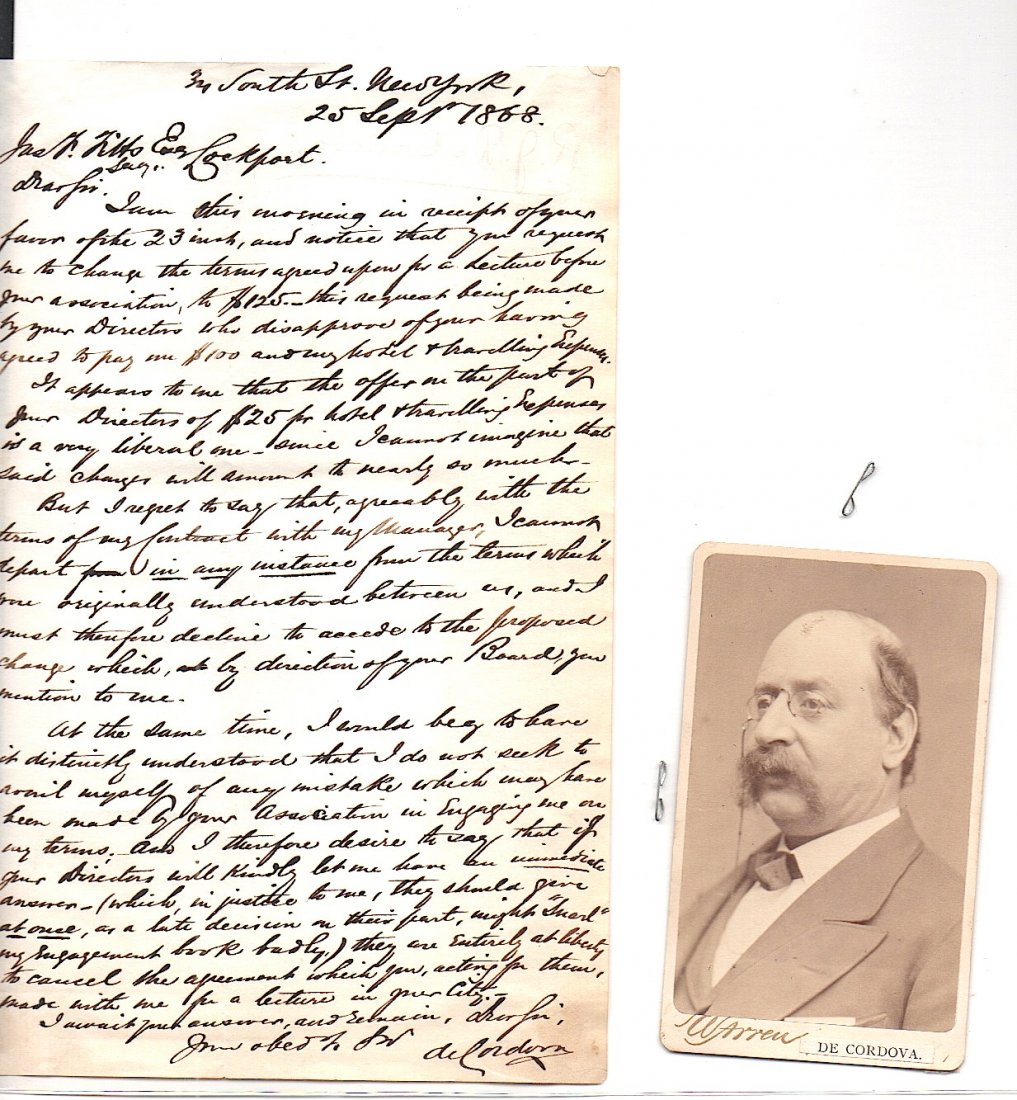 South St. New York,
25 Sept 1868.
Jas F. Fitts Esq Lockport.
Secy.
Dear Sir.
I am this morning in receipt of your
favor of the 23 inst, and notice that you request
me to change the terms agreed upon for a lecture before
your association, to $125 - this request being made
by your Directors who disapprove of your having
agreed to pay me $100 and my hotel & travelling Expenses.
It appears to me that the offer on the part of
your Directors of $25 for hotel & travelling Expenses
is a very liberal one - since I cannot imagine that
said charges will amount to nearly so much -
But I regret to say that, agreeably with the
terms of my Contract with my Manager, I cannot
depart from in any instance from the terms which
were originally understood between us, and I
must therefore decline to accede to the proposed
change which, by direction of your Board, you
mention to me.
At the same time, I would beg to have
it distinctly understood that I do not seek to
avail myself of any mistake which may have
been made by your Association in Engaging me on
my terms. And I therefore desire to say that if
your Directors will kindly let me have an immediate
answer - (which, in justice to me, they should give
at once, as a late decision on their part, might "snarl"
my Engagement book badly,) they are Entirely at liberty
to cancel the agreement which you, acting for them,
made with me for a lecture in your City -
I await your answer, and remain, Dear Sir,
Your obedt Svt
de Cordova
Warren
DE CORDOVA.